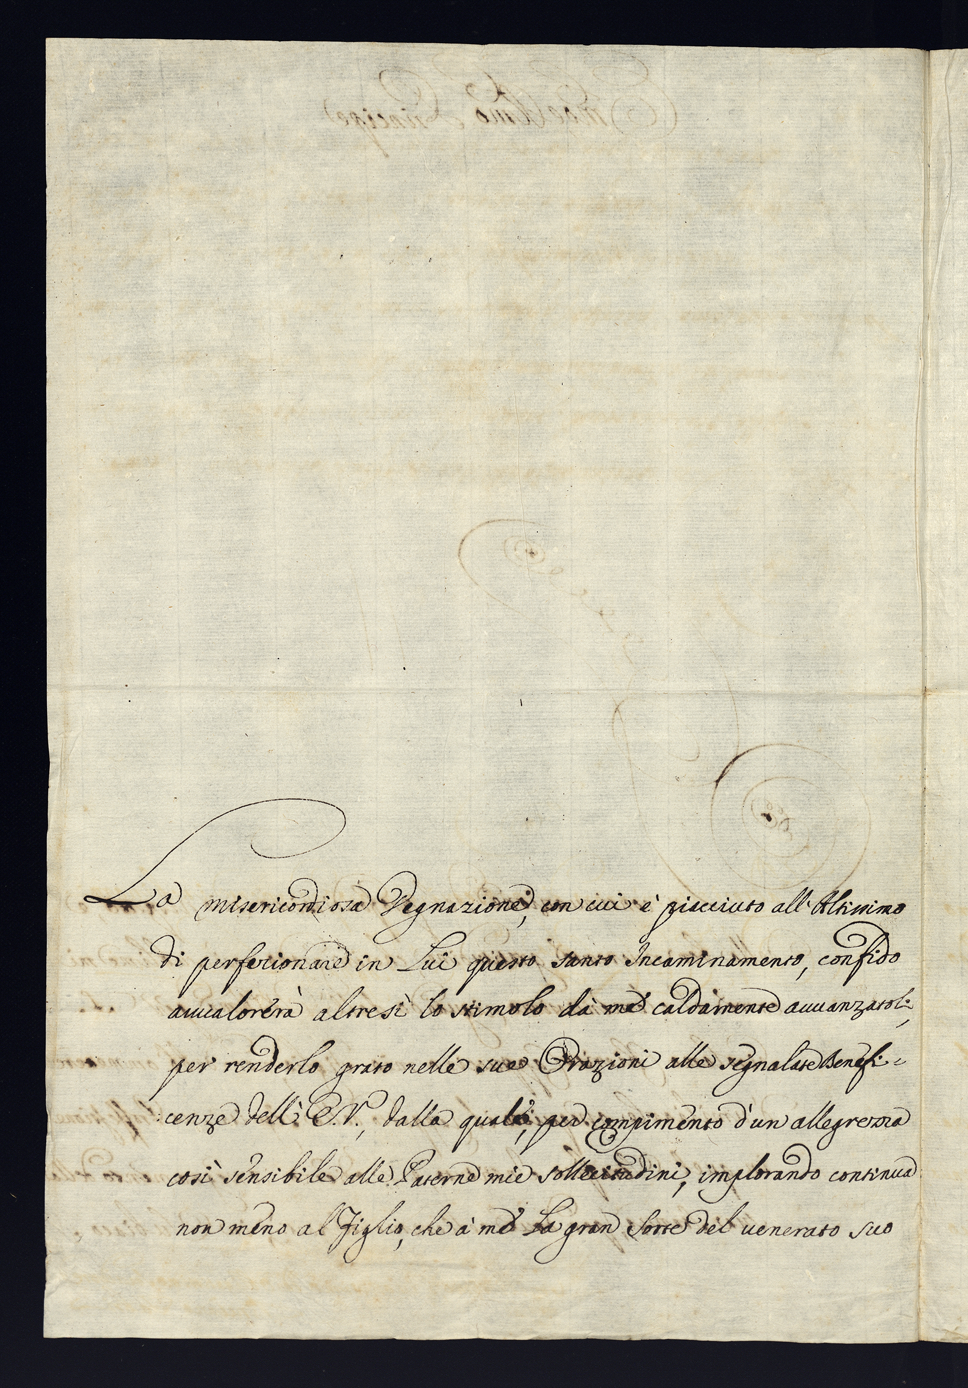 La misericordiosa Degnazione, con cui è piacciuto all'Altissimo
di perfezionare in Lui questo santo Incaminamento, confido
avvalorerà altresì lo stimolo dà mè caldamente avvanzatoli,
per renderlo grato nelle sue Orazioni alle segnalate Benefi-
cenze dell'E.V., dalla quale, per compimento d'un allegrezza
così sensibile alle Paterne mie sollecitudini, implorando continua
non meno al Figlio, che à mè La gran Sorte del venerato suo